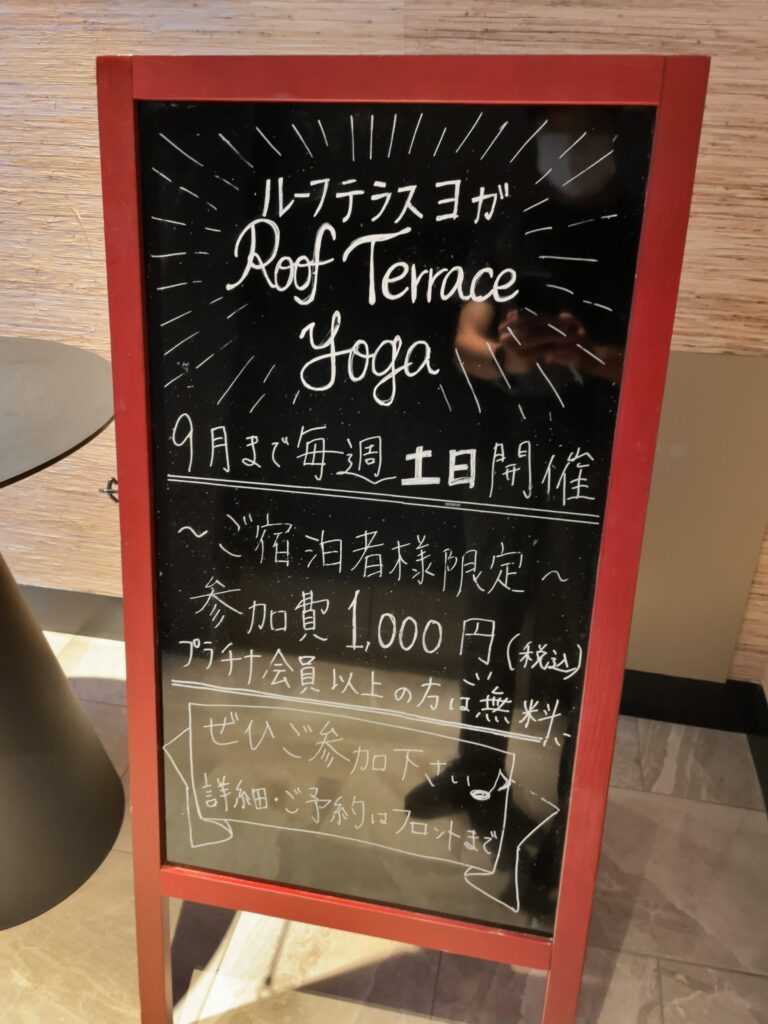 ルーフテラスヨガ
Roof Terrace
Yoga
9月まで毎週 土日 開催
～ご宿泊者様限定～
参加費 1,000円(税込)
プラチナ会員以上の方は無料
ぜひご参加下さい♪
詳細・ご予約はフロントまで